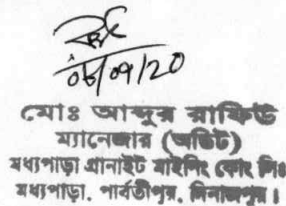 ০৮/০৭/২০
মোঃ আব্দুর রাফিউ
ম্যানেজার (অডিট)
মধ্যপাড়া গ্রানাইট মাইনিং কোং লিঃ
মধ্যপাড়া, পার্বতীপুর, দিনাজপুর।